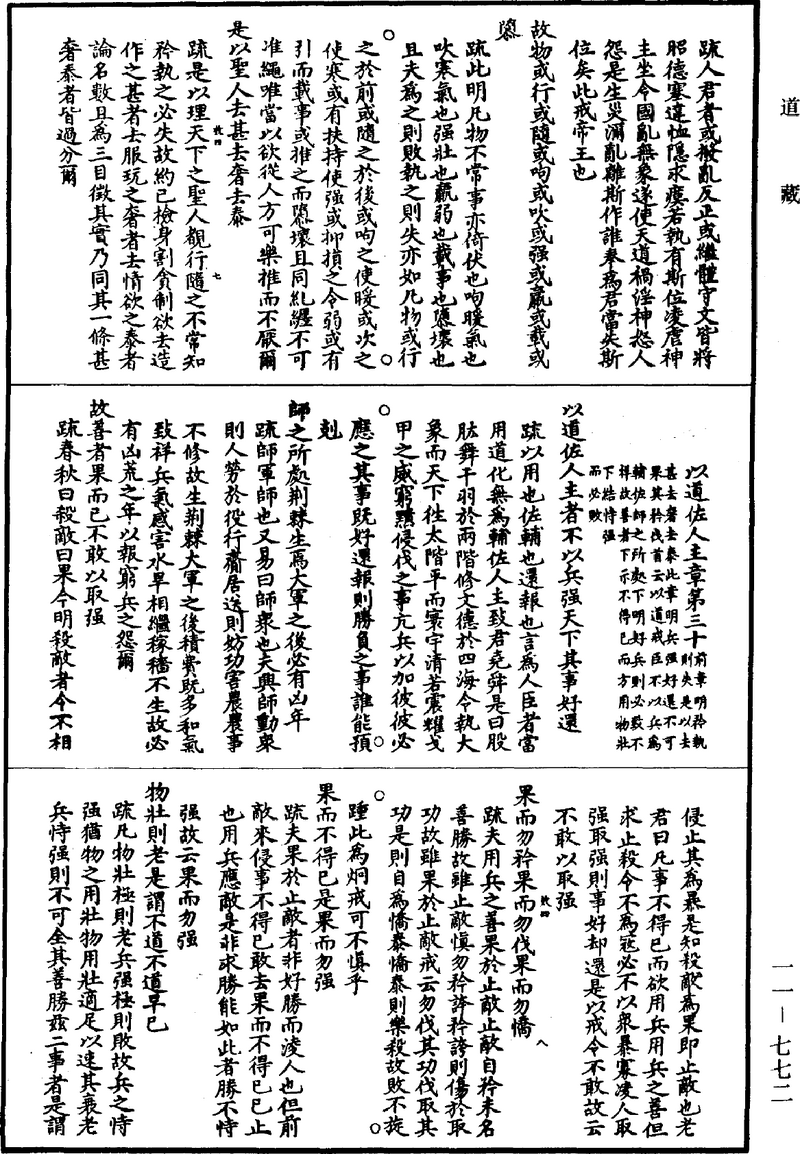 道藏
疏人君者或撥亂反正或繼體守文皆將
昭德塞違恤隱求瘼若執有斯位凌虐神
主坐令國亂無象遂使天道禍淫神怒人
怨是生災沴亂離斯作誰奉爲君當失斯
位矣此戒帝王也
故物或行或隨或呴或吹或强或羸或載或
隳
疏此明凡物不常事亦倚伏也呴暖氣也
吹寒氣也强壯也羸弱也載事也隳壞也
且夫爲之則敗執之則失亦如凡物或行
之於前或隨之於後或呴之使暖或吹之
使寒或有扶持使强或抑損之令弱或有
引而載事或推之而隳壞且同糺纆不可
准繩唯當以欲從人方可樂推而不厭爾
是以聖人去甚去奢去泰
疏是以理天下之聖人觀行隨之不常知
矜執之必失故約己檢身割貪制欲去造
作之甚者去服玩之奢者去情欲之泰者
論名數且爲三目徵其實乃同其一條甚
奢泰者皆過分爾
以道佐人主章第三十
前章明矜執則失是以去
甚去奢去泰此章明兵强好還不可
果其矜伐首云以道戒臣不以兵爲
輔佐師之所處下明好兵則必致不
祥故善者下示不得已而方用物壯
下結恃强
而必敗
以道佐人主者不以兵强天下其事好還
疏以用也佐輔也還報也言爲人臣者當
用道化無爲輔佐人主致君堯舜是曰股
肱舞干羽於兩階修文德於四海令執大
象而天下往太階平而寰宇清若震耀戈
甲之威窮黷侵伐之事亢兵以加彼彼必
應之其事既好還報則勝負之事誰能預
剋
師之所處荆棘生焉大軍之後必有凶年
疏師軍師也又易曰師衆也夫興師動衆
則人勞於役行齎居送則妨功害農農事
不修故生荆棘大軍之後積費既多和氣
致祥兵氣感害水旱相繼稼穡不生故必
有凶荒之年以報窮兵之怨爾
故善者果而已不敢以取强
疏春秋曰殺敵曰果今明殺敵者令不相
侵止其爲暴是知殺敵爲果即止敵也老
君曰凡事不得已而欲用兵用兵之善但
求止殺令不爲寇必不以衆暴寡凌人取
强取强則事好却還是以戒令不敢故云
不敢以取强
果而勿矜果而勿伐果而勿憍
疏夫用兵之善果於止敵止敵自矜未名
善勝故雖止敵慎勿矜誇矜誇則傷於取
功故雖果於止敵戒云勿伐其功伐取其
功是則自爲憍泰憍泰則樂殺故敗不旋
踵此爲炯戒可不慎乎
果而不得已是果而勿强
疏夫果於止敵者非好勝而凌人也但前
敵來侵事不得已敢去果而不得已已止
也用兵應敵是非求勝能如此者勝不恃
强故云果而勿强
物壯則老是謂不道不道早已
疏凡物壯極則老兵强極則敗故兵之恃
强猶物之用壯物用壯適足以速其衰老
兵恃强則不可全其善勝兹二事者是謂
一一－七七二